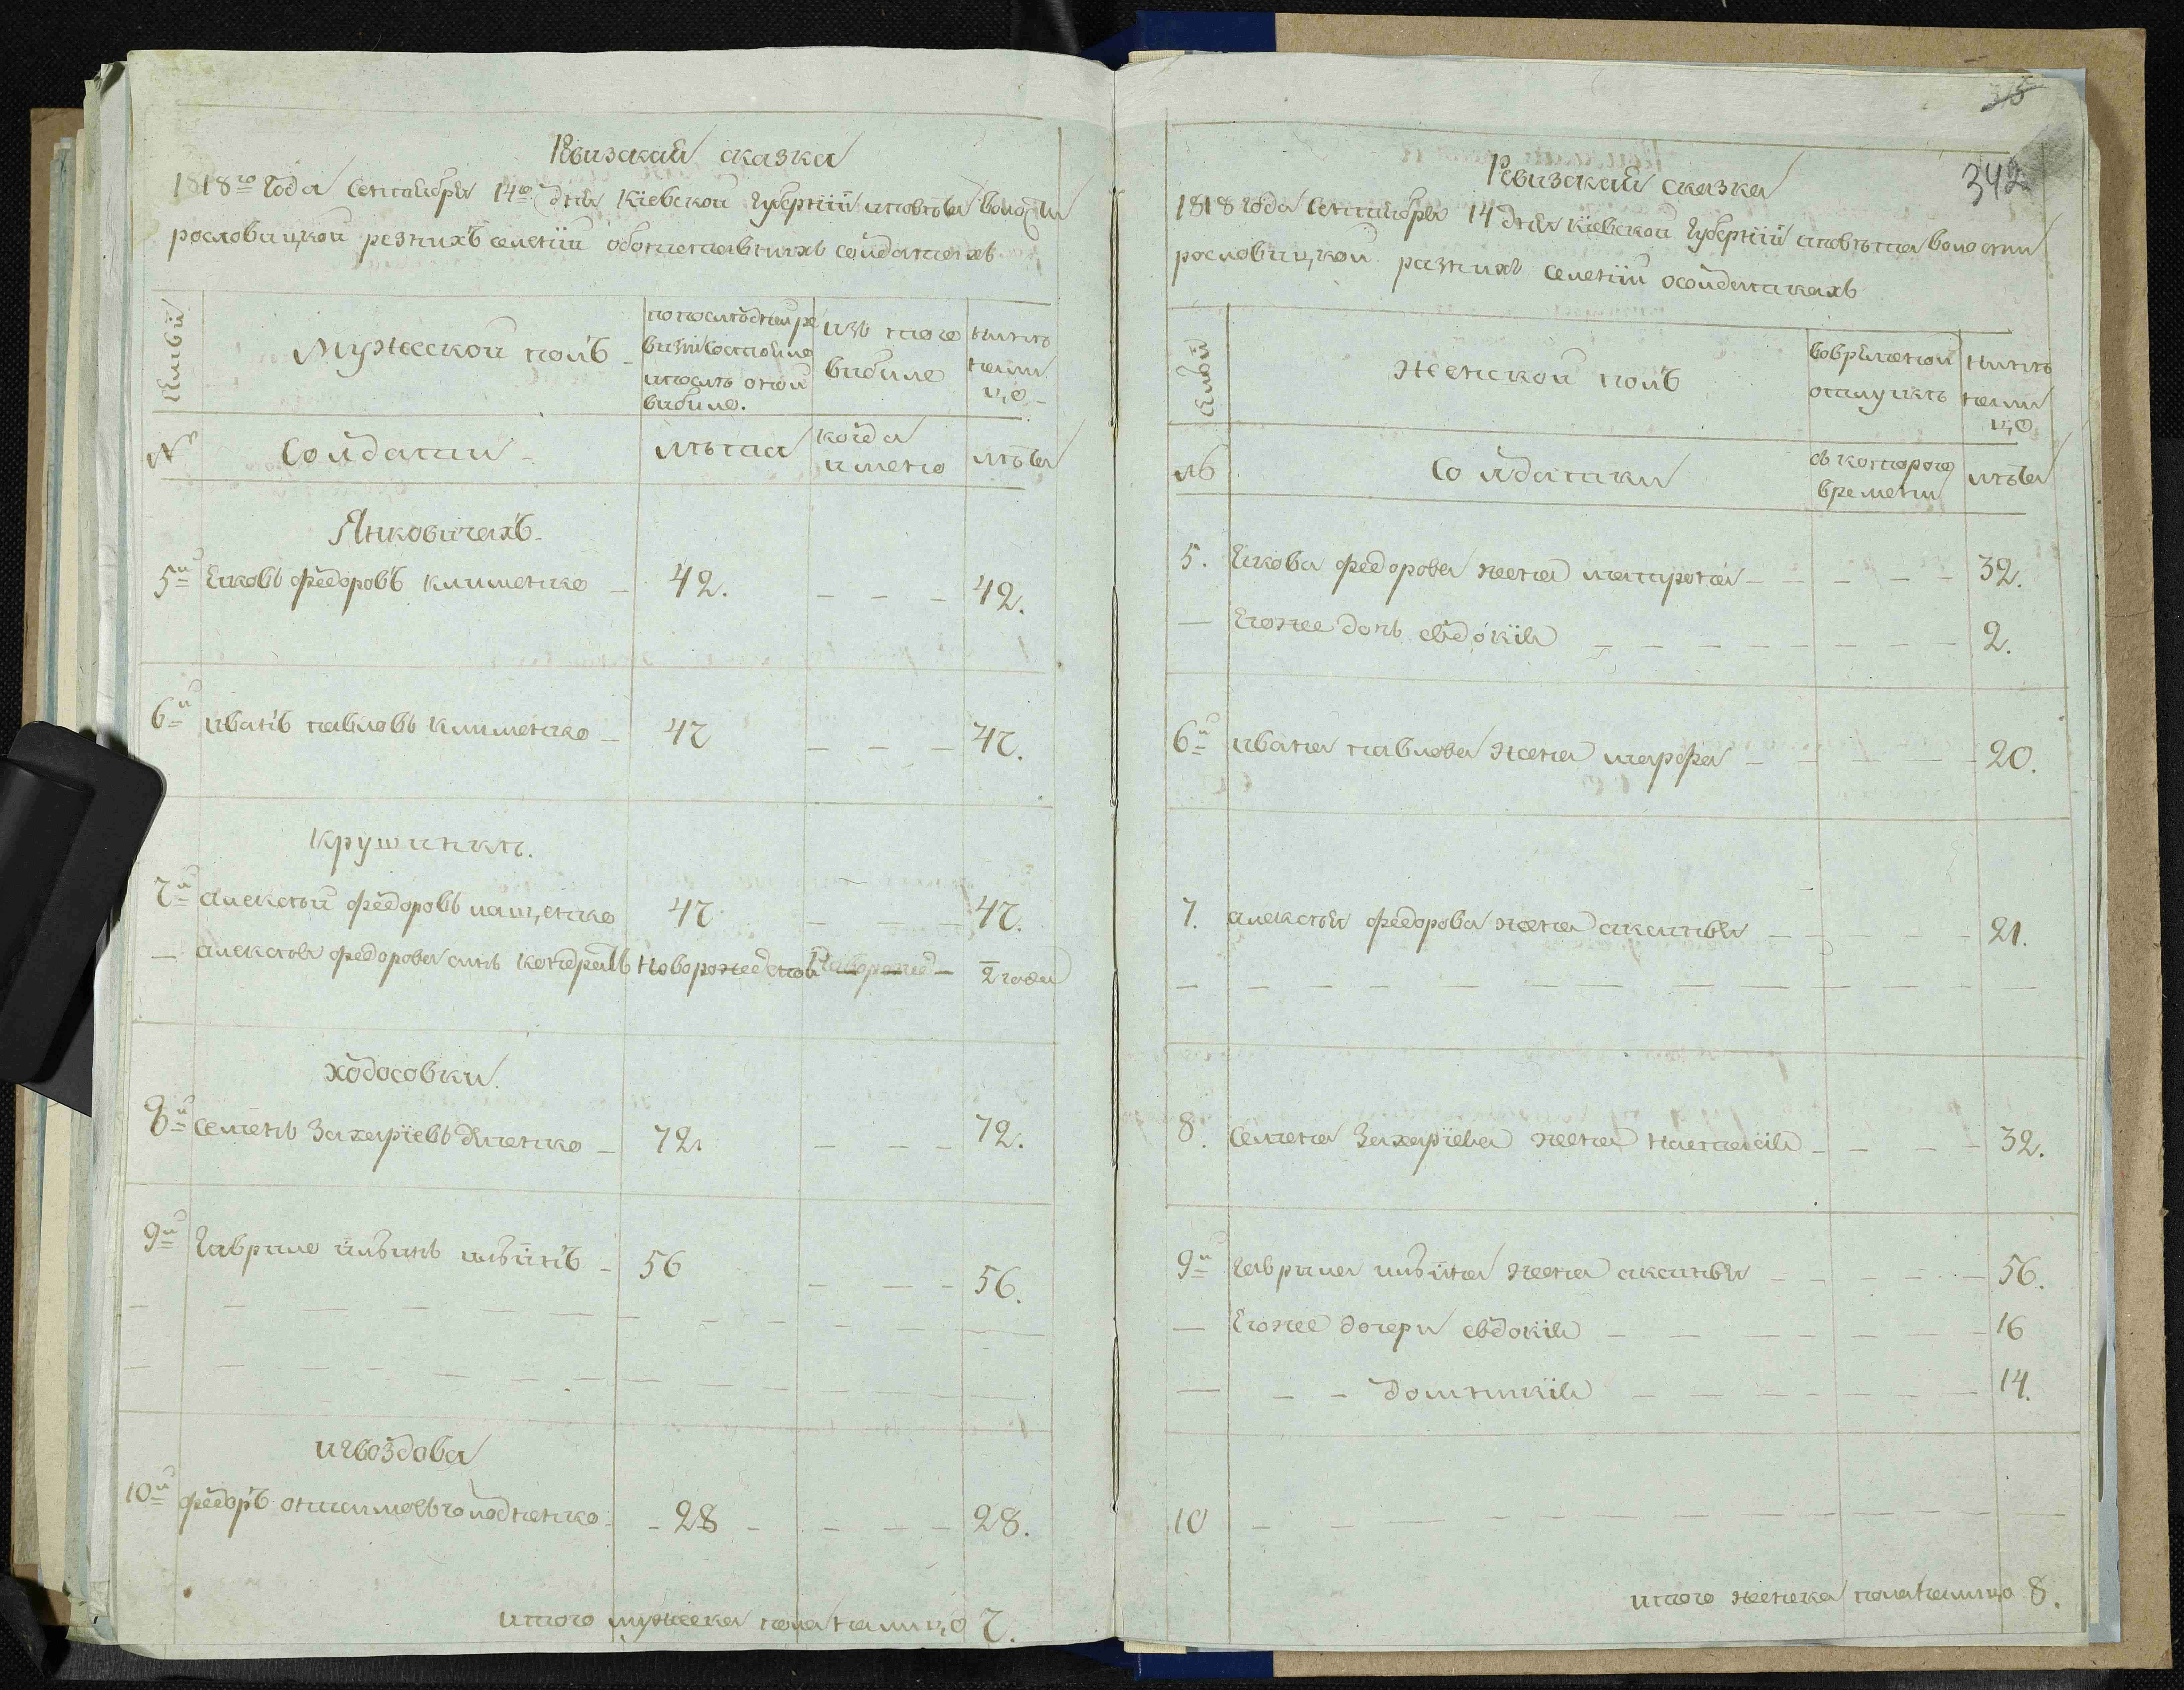 Ревизская сказка
1818го года Сентября 14го дня Кіевской Губерніи и повѣта волости
рословицкой разнихъ селеній обонеставнихъ солдатахъ
семьи
Мужескои полъ
по последней ре
визіи состояло
и после оной
вибило.
изъ того
вибило
нинѣ
на ли
цо
№
Солдати
лѣта
когда
именно
лѣта
Янковичахъ
5й Яковъ федоровъ клименко 42. 42.
6й иванъ павловъ клименко 47 47.
Крушинкѣ.
7й алексѣй федоровъ 47 47.
алексѣя федорова синъ кондратъ новорожденой новорожд 2 года
ходосовки.
8й Семенъ Захаріевъ 72. 72.
9й Гаврило ильинъ ильинъ 56 56.
игвоздова
10й федоръ голодненко 28 28.
итого мужеска пола на лицо 7.
35
342
Ревизская сказка
1818 года Сентября 14 дня Кіевской Губерніи и повѣта волости
рословицкой разнихъ селеній осолдаткахъ
семьи
женской полъ
вовременой
отлучкѣ
нинѣ
на ли
цо
№
Солдатки
съ которого
времени
лѣта
5. Якова федорова жена матрона 32.
Егоже дочь евдокія 2.
6й ивана павлова жена марфа 20.
7. алексѣя федорова жена акилина 21.
8. Семена Захаріева жена настасія 32.
9й Гаврила ильина жена акилина 56.
Егоже дочери евдокія 16
домникія 14.
10
итого женска пола на лицо 8.